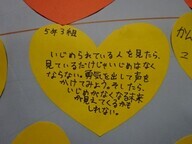 5年3組
いじめられている人を見たら、
見ているだけじゃいじめはなく
ならない。勇気を出して声を
かけてみよう。そしたら、
いじめがなくなる未来
が見えてくるかも
しれない。